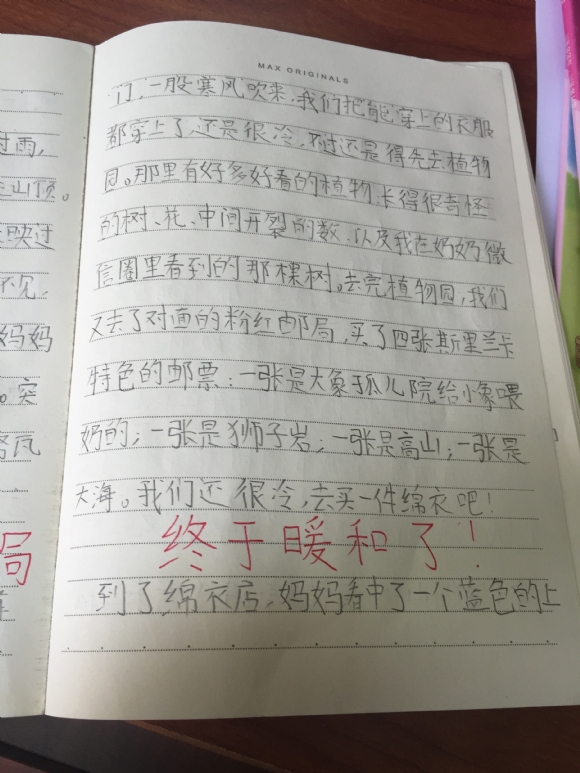 MAX ORIGINALS
门,一股寒风吹来,我们把能穿上的衣服
都穿上了,还是很冷,不过还是得先去植物
园。那里有好多好看的植物,长得很奇怪
的树、花、中间开裂的数,以及我在奶奶微
信圈里看到的那棵树。去完植物园,我们
又去了对面的粉红邮局,买了四张斯里兰卡
特色的邮票:一张是大象孤儿院给小象喂
奶的;一张是狮子岩;一张是高山;一张是
大海。我们还很冷,去买一件绵衣吧!
终于暖和了!
到了绵衣店,妈妈看中了一个蓝色的上
雨,
山顶。
映过
不见,
妈妈
。突
风
局